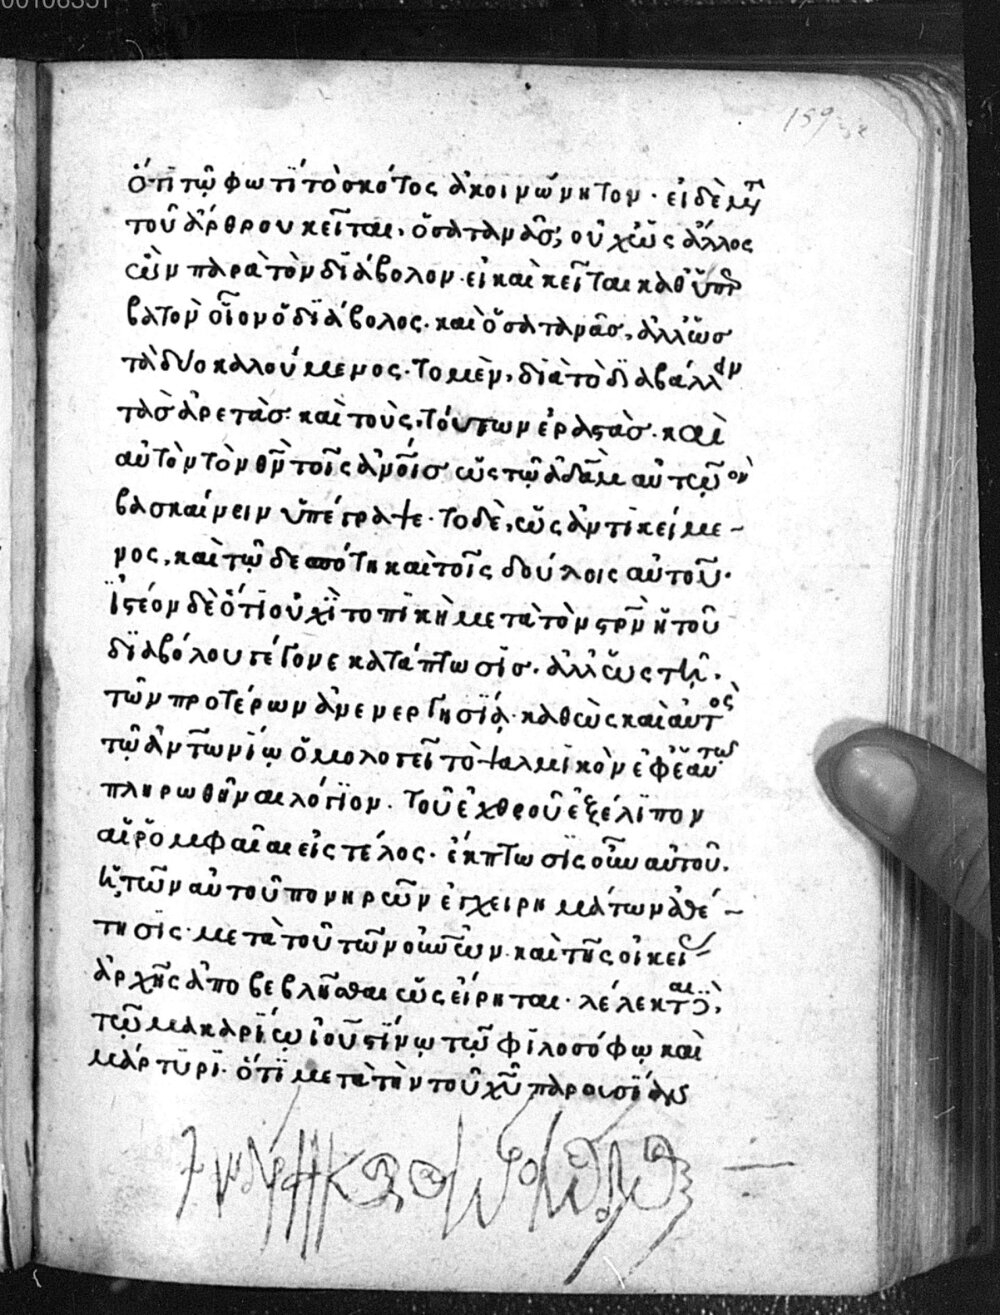 00108351
159
ὅτι τῷ φωτὶ τὸ σκότος ἀκοινώνητον · εἰ δὲ μ(ε)τ(ὰ)
τοῦ ἄρθρου κεῖται, ὁ σατανᾶς, οὐχ ὡς ἄλλος
ὢν παρὰ τὸν διάβολον · εἰ καὶ κεῖται καθ ὑπὲρ
βατὸν οἷον ὁ διάβολος · καὶ ὁ σατανᾶς, ἀλλ ὡς
τὰ δύο καλούμενος · τὸ μὲν, διὰ τὸ διαβάλλειν
τὰς ἀρετὰς · καὶ τοὺς τούτων ἐραστὰς · καὶ
αὐτὸν τὸν θν τοῖς ἀνοις ὡς τῷ ἀδὰμ αὐτῷ ὃν
βασκαίνειν ὑπέγραψε · τὸ δὲ, ὡς ἀντικείμε-
νος, καὶ τῷ δεσπότῃ καὶ τοῖς δούλοις αὐτοῦ ·
ἰστέον δὲ ὅτι οὐχὶ τοπικὴ μετὰ τὸν στρν ἡ τοῦ
διαβόλου γέγονε κατάπτωσις · ἀλλ ὡς τῇ
τῶν προτέρων ἀνενεργησίᾳ · καθὼς καὶ αὐτὸς
τῷ ἀντωνίῳ ὁμολογεῖ τὸ ψαλμικὸν ἐφ ἑαυτῷ
πληρωθῆναι λόγιον · τοῦ ἐχθροῦ ἐξέλιπον
αἱ ῥομφαῖαι εἰς τέλος · ἔκπτωσις οὖν αὐτοῦ ·
ἡ τῶν αὐτοῦ πονηρῶν ἐγχειρημάτων ἀθέ-
τησις · μετὰ τοῦ τῶν οὐνῶν · καὶ τῆς οἰκείας
ἀρχῆς ἀποβεβλῆσθαι ὡς εἴρηται · λέλεκται
τῷ μακαρίῳ ἰουστίνῳ τῷ φιλοσόφῳ καὶ
μάρτυρι · ὅτι μετὰ τὴν τοῦ χυ παρουσίας